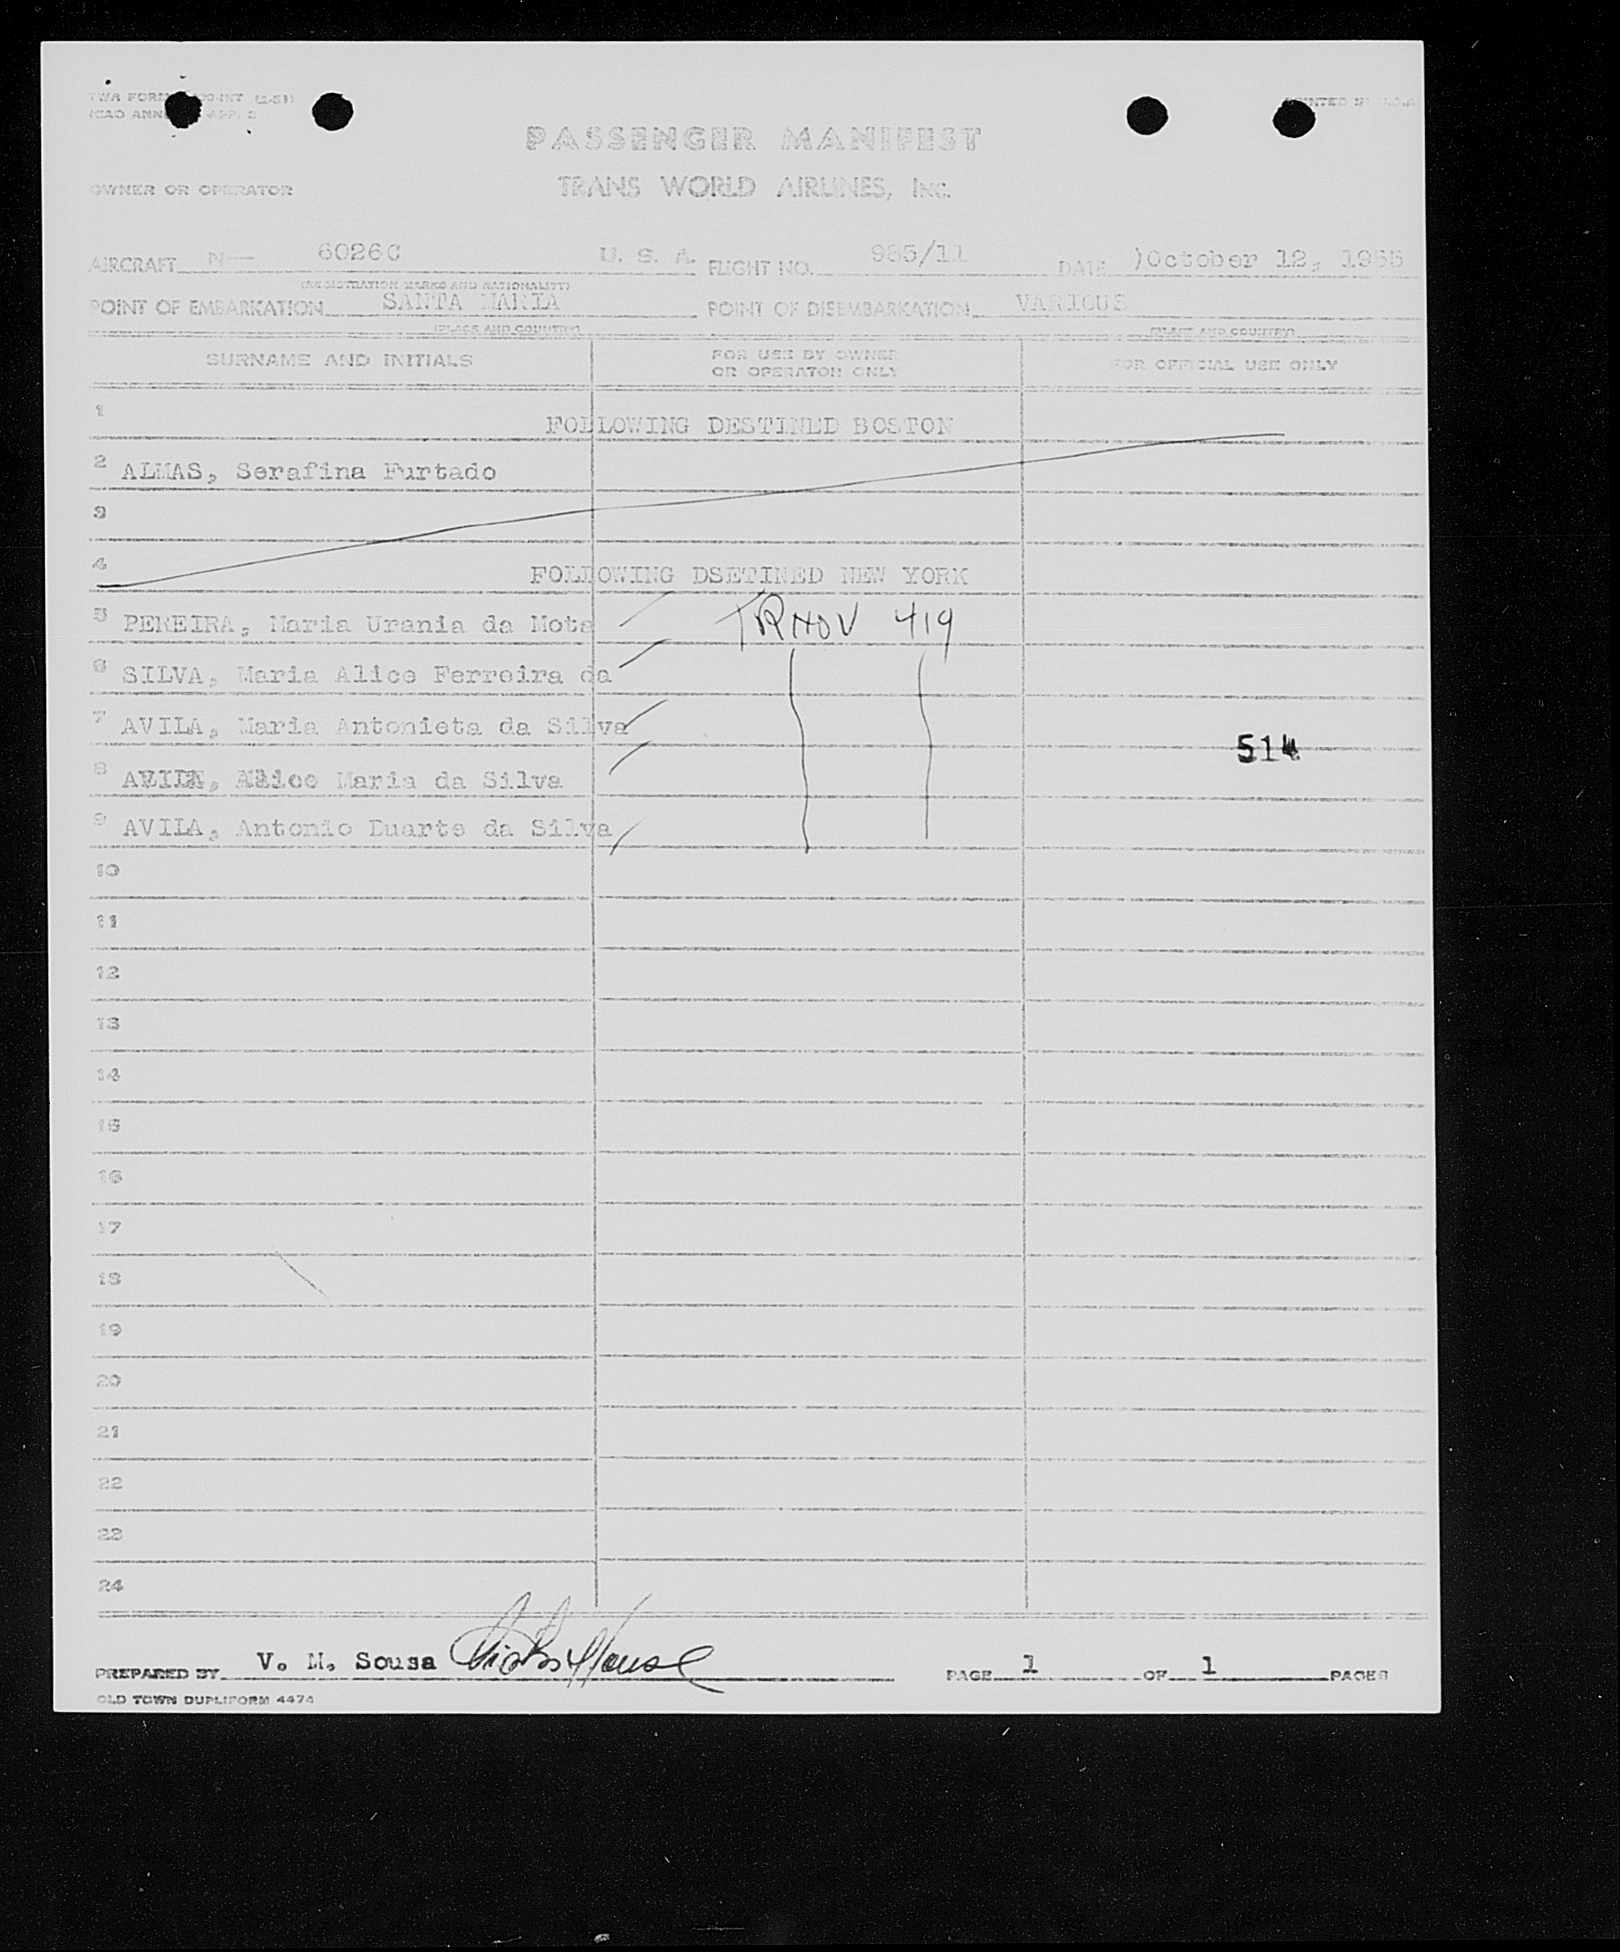 TWA FORM INT (2-51) PRINTED IN U.S.A.
ICAO ANNEX APP.
PASSENGER MANIFEST
OWNER OR OPERATOR TRANS WORLD AIRLINES, INC.
AIRCRAFT N— 6026C U. S. A. FLIGHT NO. 985/11 DATE )October 12, 1955
(REGISTRATION MARKS AND NATIONALITY)
POINT OF EMBARKATION SANTA MARIA POINT OF DISEMBARKATION VARIOUS
(PLACE AND COUNTRY) (PLACE AND COUNTRY)
SURNAME AND INITIALS FOR USE BY OWNER OR OPERATOR ONLY FOR OFFICIAL USE ONLY
1 FOLLOWING DESTINED BOSTON
2 ALMAS, Serafina Furtado
3
4 FOLLOWING DSETINED NEW YORK
5 PEREIRA, Maria Urania da Mota 419
6 SILVA, Maria Alice Ferreira da
7 AVILA, Maria Antonieta da Silva
514
8 AVILA, Alice Maria da Silva
9 AVILA, Antonio Duarte da Silva
10
11
12
13
14
15
16
17
18
19
20
21
22
23
24
PREPARED BY V. M. Sousa PAGE 1 OF 1 PAGES
OLD TOWN DUPLIFORM 4474